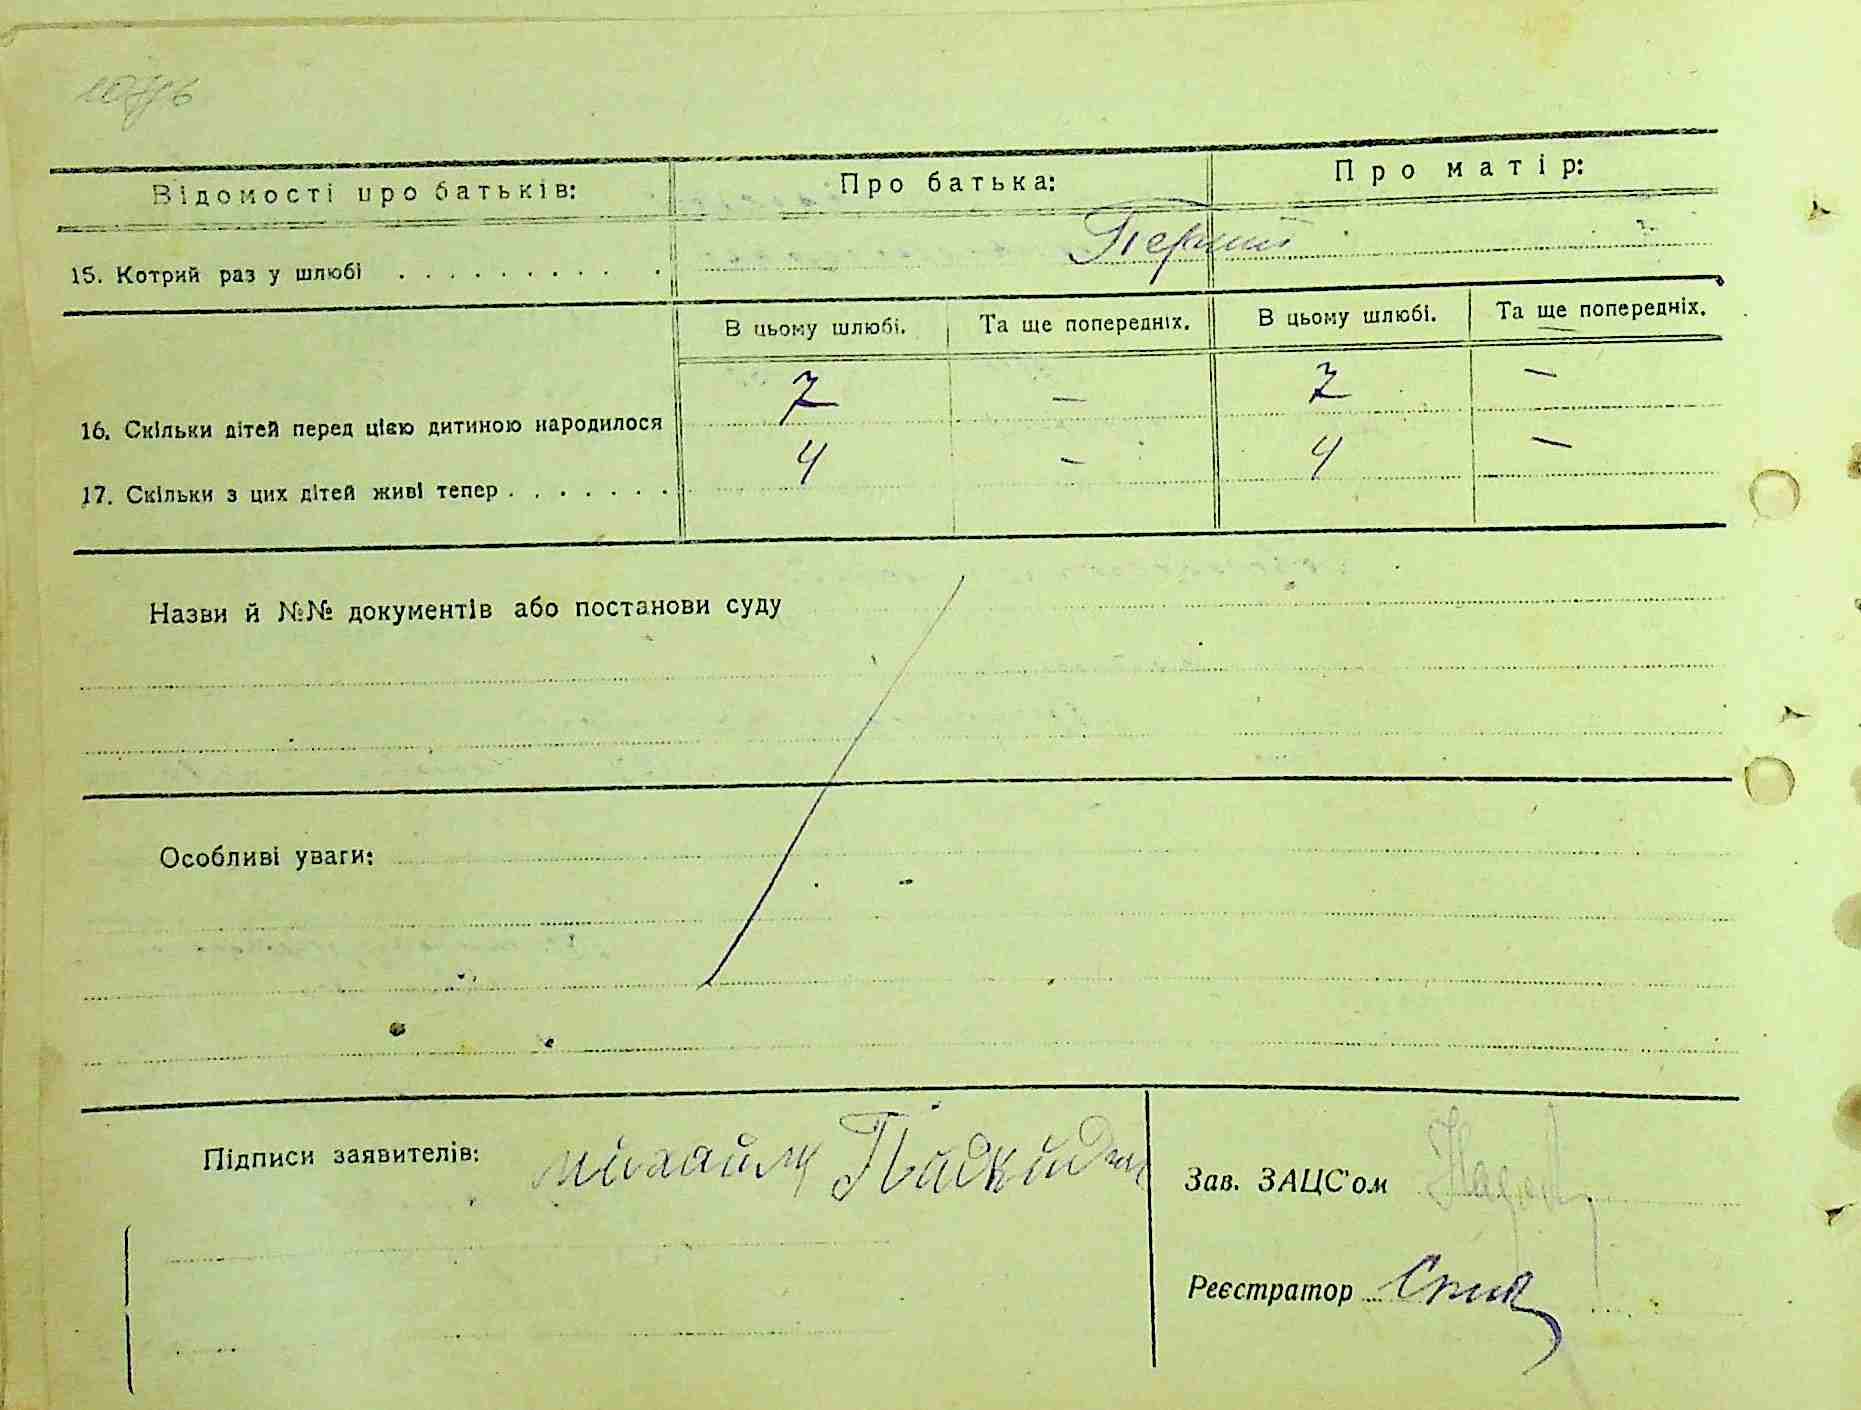 Відомості про батьків: Про батька: Про матір:
15. Котрий раз у шлюбі . . . . . . . . . . Перший
В цьому шлюбі. Та ще попередніх. В цьому шлюбі. Та ще попередніх.
16. Скільки дітей перед цією дитиною народилося 7 — 7 —
17. Скільки з цих дітей живі тепер . . . . . . . 4 — 4 —
Назви й №№ документів або постанови суду
Особливі уваги:
Підписи заявителів:
Зав. ЗАЦС'ом
Реєстратор